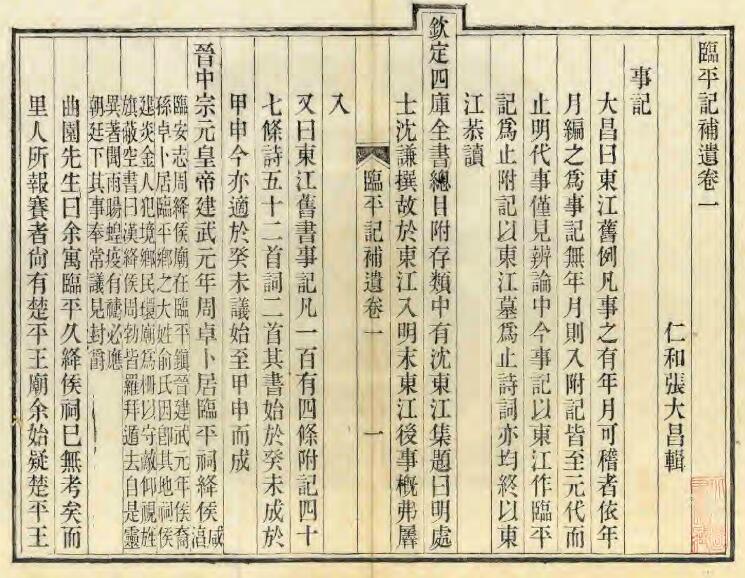 臨平記補遺卷一
仁和張大昌輯
事記
大昌曰東江舊例凡事之有年月可稽者依年
月編之爲事記無年月則入附記皆至元代而
止明代事僅見辨論中今事記以東江作臨平
記爲止附記以東江墓爲止詩詞亦均終以東
江恭讀
欽定四庫全書總目附存類中有沈東江集題曰明處
士沈謙撰故於東江入明末東江後事槪弗羼
臨平記補遺卷一
一
入
又曰東江舊書事記凡一百有四條附記四十
七條詩五十二首詞二首其書始於癸未成於
甲申今亦適於癸未議始至甲申而成
晉中宗元皇帝建武元年周卓卜居臨平祠絳侯咸淳
臨安志周絳侯廟在臨平鎭晉建武元年侯裔
孫卓卜居臨平鄕之大姓俞氏因卽其地祠侯
建炎金人犯境鄕民環廟爲栅以守敵仰視旌
旗蔽空書曰漢絳侯周勃皆羅拜遁去自是靈
異著聞雨暘蝗疫有禱必應
朝廷下其事奉常議見封爵
曲園先生曰余寓臨平久絳侯祠已無考矣而
里人所報賽者尙有楚平王廟余始疑楚平王